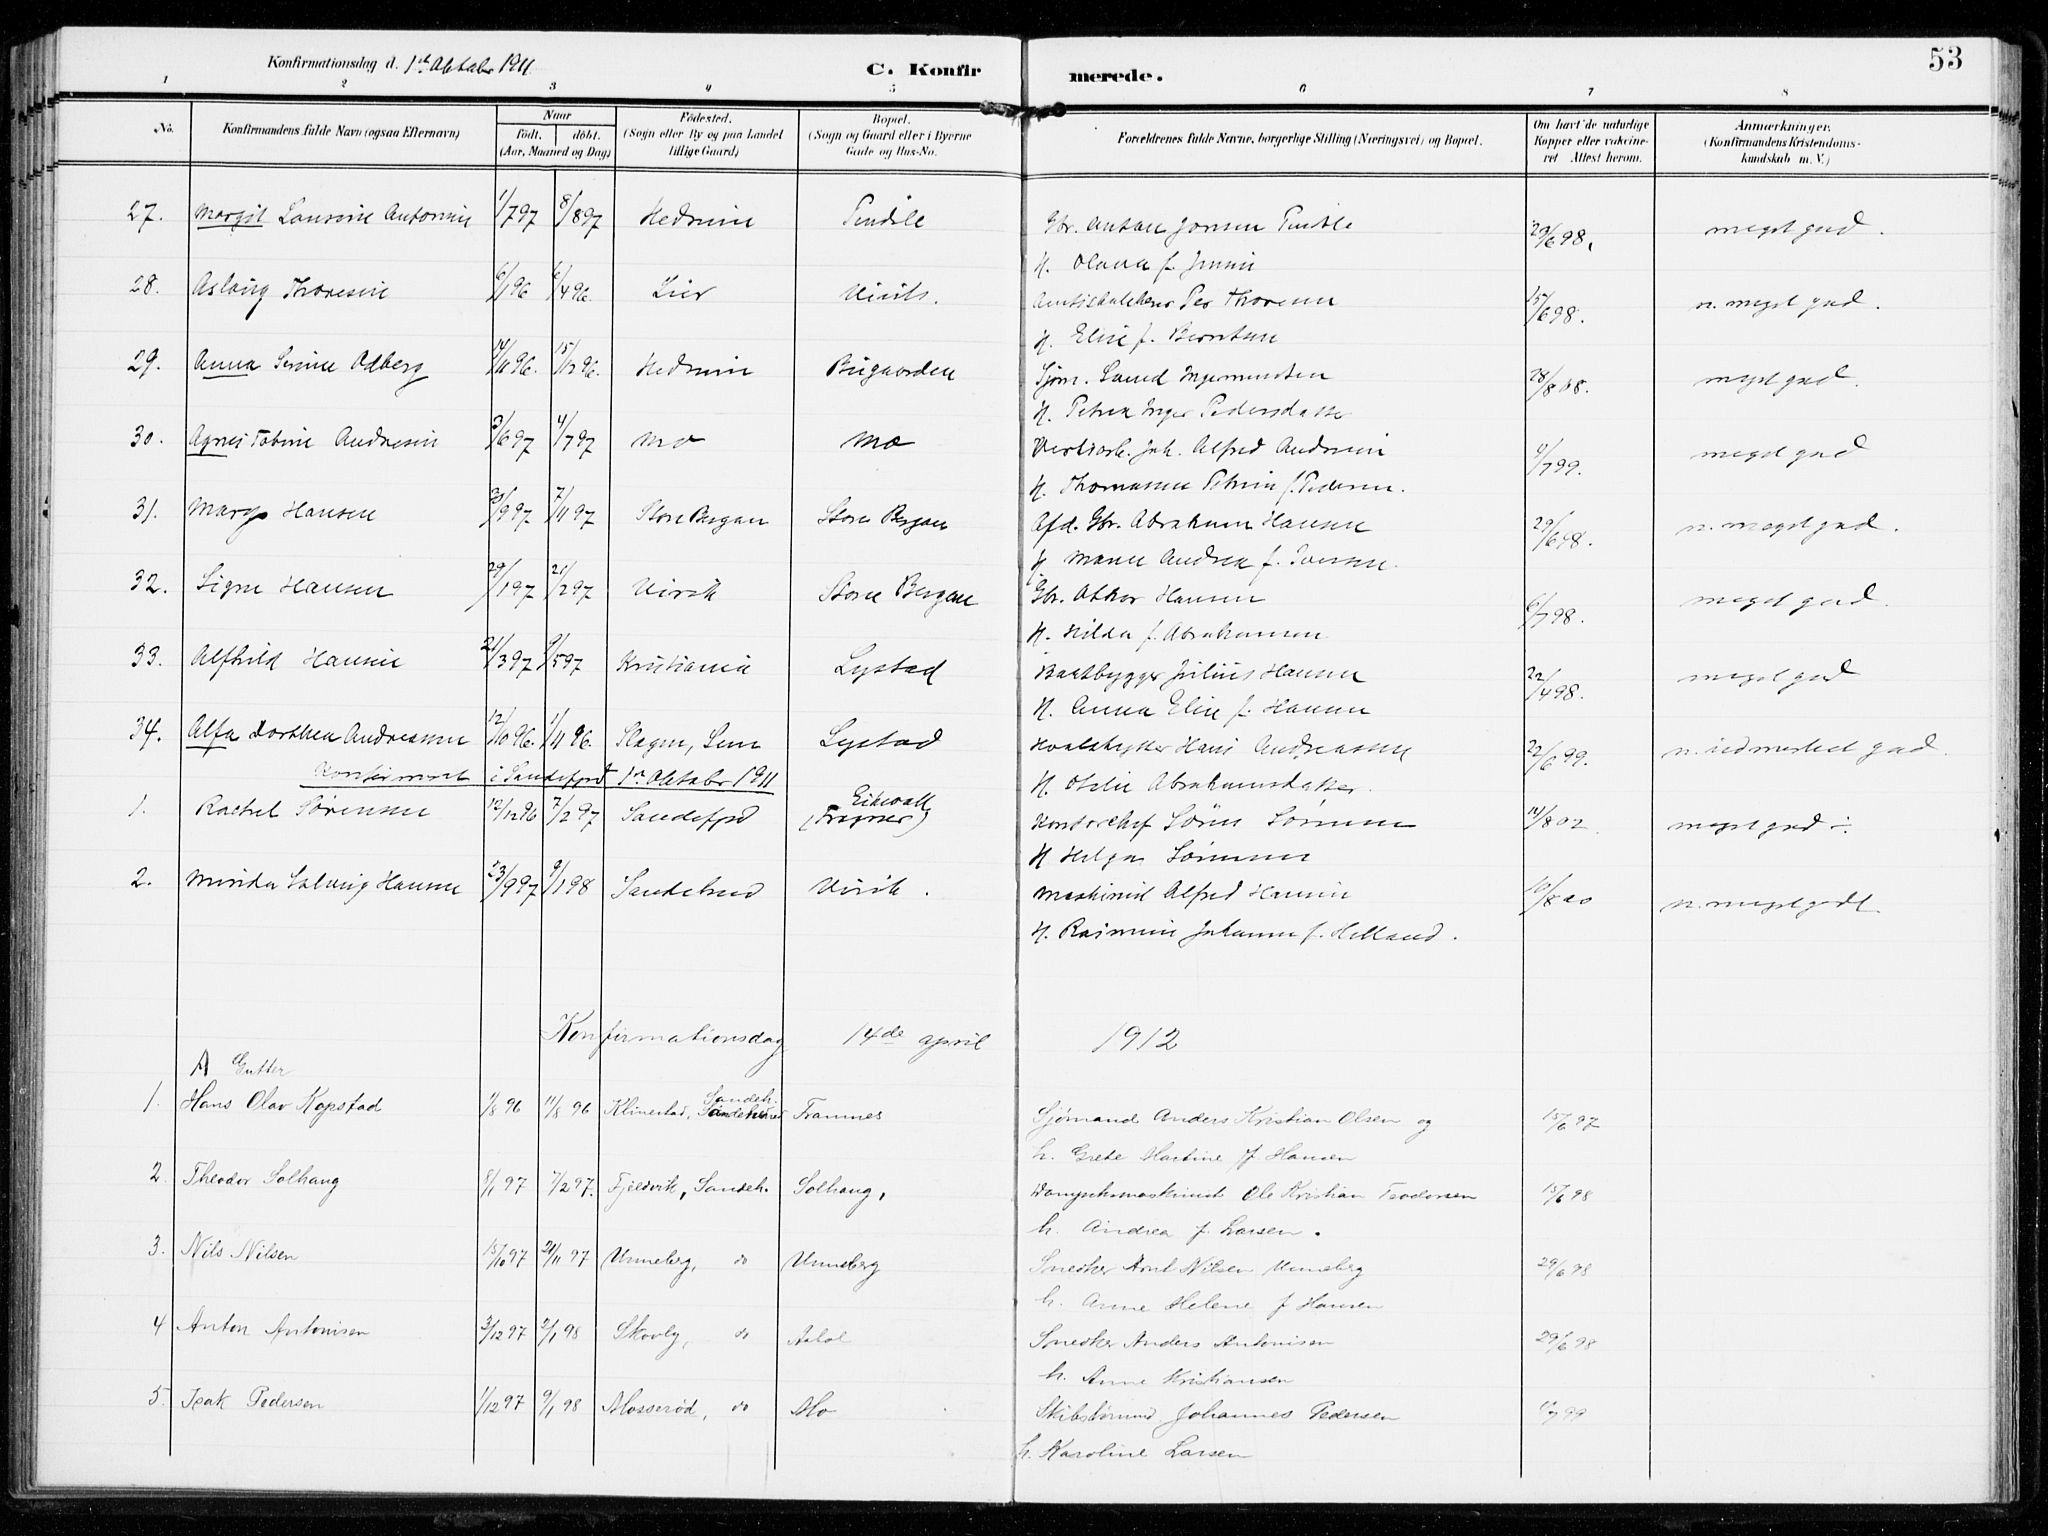 53
Konfirmationsdag d. 1ste Oktober 1911
C. Konfirmerede.
1 2 3 4 5 6 7 8
No. Konfirmandens fulde Navn (ogsaa Efternavn) Naar født. døbt. (Aar, Maaned og Dag) Fødested. (Sogn eller By og paa Landet tillige Gaard) Bopæl. (Sogn og Gaard eller i Byerne Gade og Hus-No. Forældrenes fulde Navne, borgerlige Stilling (Næringsvei) og Bopæl. Om havt de naturlige Kopper eller vakcineret Attest herom. Anmærkninger. (Konfirmandens Kristendomskundskab m. V.)
27. Margit Laurine Antonsen 1/7 97 8/8 97 Hedrum Gbr. Anton
29/6 98. meget god.
H. Olava f.
28. Aslaug Thoresen 6/1 96 6/4 96. Lier Virik. Per Thoresen
15/6 98. n. meget god.
H. Elise f. Berntsen
29. Anna Serine Odberg 14/11 96. 15/12 96. Hedrum Bugaarden Sjøm. Ingemundsen
28/8 meget god.
H. Petrea Inger Pedersdatter
30. Agnes Tobine Andresen 3/6 97 4/7 97 Mo Mo Joh. Alfred Andresen
4/7 99. meget god
H. Thomasine Petrine f. Pedersen.
31. Margo Hansen 30/9 97 7/11 97 Store Bergan Store Bergan Afd. Gbr. Abraham Hansen
29/6 98. n. meget god.
H. Maren Andrea f. Iversen.
32. Signe Hansen 29/1 97 21/2 97 Virik Store Bergan Gbr. Hansen
6/7 98. meget god.
H. Hilda f. Abrahamsen
33. Alfhild Hansen 21/3 97 9/5 97 Kristiania Lystad Baatbygger Julius Hansen
22/4 98. meget god
H. Anna Elise f. Hansen
34. Alfa Dorthea Andreasen 12/10 96. 1/11 96. Slagen, Sem Lystad Hvalskytter Hans Andreassen
22/6 99. n. udmerket god.
Konfirmeret i Sandefjord 1ste Oktober 1911
H. Otilie Abrahamsdatter.
1. Rachel Sørensen 12/12 96 7/2 97 Sandefjord Ekevall (Framnes) Kontorchef Søren Sørensen
11/8 02. meget god ÷.
H Helga Sørensen
2. Minda Solveig Hansen 23/9 97 9/1 98 Sandeherred Virik. Maskinist Alfred Hansen
10/8 00 n. meget godt.
H. Rasmine Johanne f. Helland.
Konfirmationsdag 14de april 1912
A Gutter
1. Hans Olav Kopstad 1/8 96 11/8 96 Klinestad, Sandeh. Framnes Sjømand Anders Kristian Olsen og
15/6 97
h. Grete Martine f Hansen
2. Theodor Solhaug 8/1 97 7/2 97. Fjeldvik, Sandeh. Solhaug, Dampskmaskinist Ole Kristian Teodorsen
15/6 98
h. Andrea f. Larsen.
3. Nils Nilsen 15/10 97 21/11 97 Unneberg, do Unneberg Snedker Arnt Nilsen Unneberg
29/6 98
h. Anne Helene f Hansen
4 Anton Antonisen 3/12 97 2/1 98 Skovly, do Snedker Anders Antonisen
29/6 98
h. Anne Kristiansen
5. Isak Pedersen 1/12 97 9/1 98 Mosserød, do Mo Skibstømmd Johannes Pedersen
h. Karoline Larsen